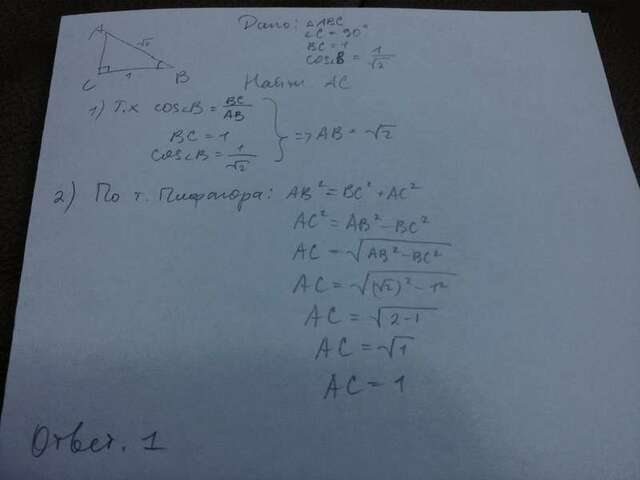 Дано: △ABC
∠C = 90°
BC = 1
cos∠B = 1/√2
Найти: AC
A
√2
C 1 B
1) Т.к cos∠B = BC/AB
BC = 1
cos∠B = 1/√2
=> AB = √2
2) По т. Пифагора: AB² = BC² + AC²
AC² = AB² − BC²
AC = √(AB² − BC²)
AC = √((√2)² − 1²)
AC = √(2-1)
AC = √1
AC = 1
Ответ. 1